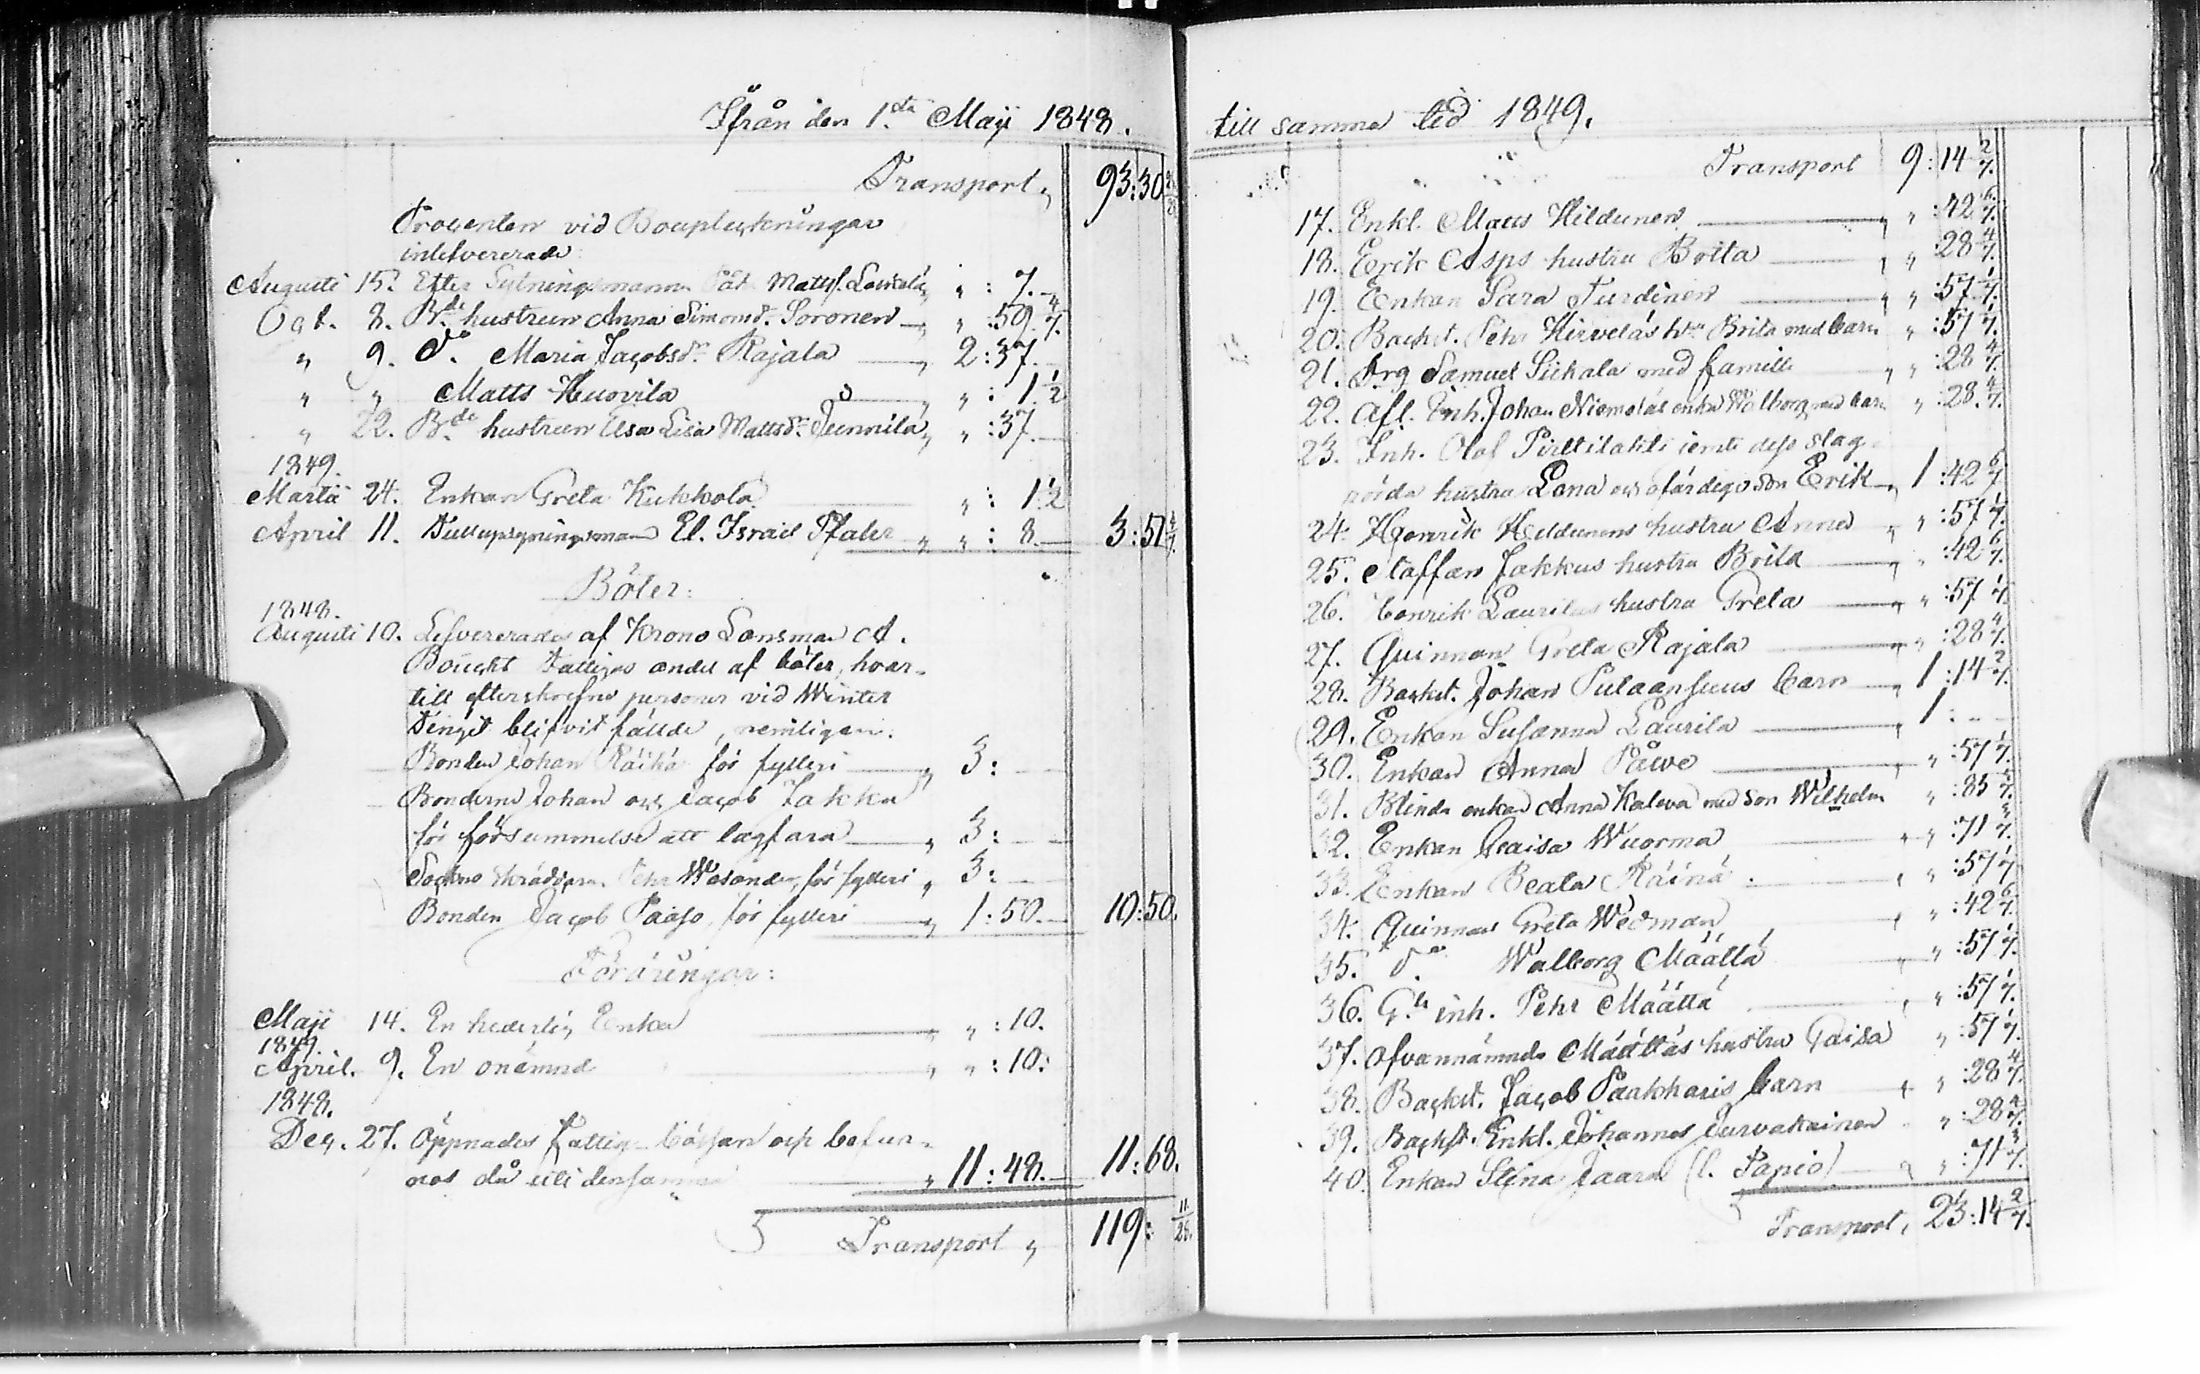 Ifrån den 1.sta Maji 1848.
Transport „ 93:30
Procenten vid Bouptekningar
inlefvererade:
Augusti 15. Efter Sytningsmannen Påt Matts Loukola „ „ : 7.
Oct. 8. B.de hustrun Anna Simonsd.r Soronen „ „ :59 4/7.
„ 9. D.o Maria Jacobsd.r Rajala „ 2:37.
„ „ Matts Huovila „ „ : 1 1/2
„ 22. B.de hustrun Elsa Lisa Mattsd.r Junnila „ „ :37.
1849.
Martii 24. Enkan Greta Kukkola „ : 1 1/2
April 11. El. Israel „ „ : 8. 3:51 4/7.
Böter:
1848.
Augusti 10. Lefvererades af Krono Lensman A.
Boucht Fattiges andel af böter, hvar-
till efterskrefne personer vid Winter
Tinget blifvit fällde, nemligen:
Bonden Johan Räihä för fylleri „ 3:
Bönderne Johan och Jacob Jakku
för försummelse att lagfara „ 3:
Sockne skräddaren Pehr Wasander för fylleri „ 3:
Bonden Jacob Paaso för fylleri „ 1:50. 10:50.
Föräringar:
Maji 14. En hederlig Enka „ „ :10.
1849.
April. 9. En onämnd „ „ :10:
1848.
Dec. 27. Öppnades Fattig-bössan och befun-
nos då uti densamma „ 11:48. 11:68.
Transport „ 119: 11/28.
till samma tid 1849.
Transport 9:14 2/7.
17. Enkl. Matts Hildunen „ „ :42 6/7.
18. Erik Asps hustru Brita „ „ :28 4/7.
19. Enkan Sara Turdinen „ „ :57 1/7.
20. Backst. Pehr Hirveläs h:u Brita med barn „ :57 1/7.
21. Drg Samuel Siikala med familie „ „ :28 4/7.
22. Afl. Inh. Johan Niemeläs enka Walborg med barn „ :28 4/7.
23. Inh. Olof Pirttilahti jemte dess slag-
rörda hustru Lena och ofärdige son Erik „ 1:42 6/7
24. Henrik Hildunens hustru Anna „ „ :57 1/7.
25. Staffan Jakkus hustru Brita „ „ :42 6/7.
26. Henrik Laurilas hustru Greta „ „ :57 1/7.
27. Quinnan Greta Rajala „ „ :28 4/7.
28. Backst. Johan Pulaansuus barn „ 1:14 2/7.
29. Enkan Susanna Laurila „ 1:
30. Enkan Anna Påwe „ „ :57 1/7.
31. Blinda enkan Anna Kaleva med son Wilhelm „ :85 5/7.
32. Enkan Caisa Wuorma „ „ :71 3/7.
33. Enkan Beata Räinä „ „ :57 1/7
34. Quinnan Greta Wedman „ „ :42 6/7.
35. D.o Walborg Määttä „ „ :57 1/7.
36. G.le inh. Pehr Määttä „ „ :57 1/7.
37. Ofvannämnde Määttäs hustru Caisa „ :57 1/7.
38. Backst. Jacob Paakkaris barn „ „ :28 4/7.
39. Backst. Enkl. Johannes Turvakainen „ :28 4/7.
40. Enkan Stina Jaara (l. Papio) „ „ :71 3/7.
Transport, 23:14 2/7.